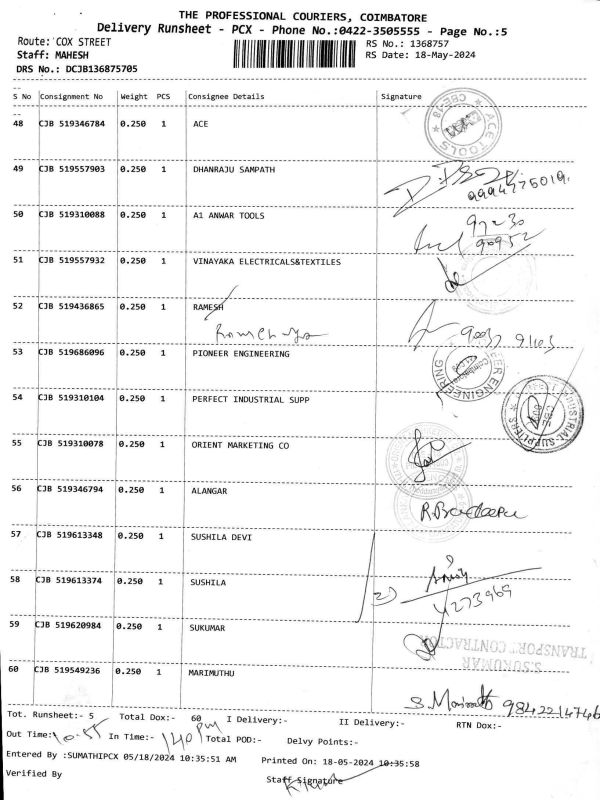 THE PROFESSIONAL COURIERS, COIMBATORE
Delivery Runsheet - PCX - Phone No.:0422-3505555 - Page No.:5
Route: COX STREET
RS No.: 1368757
Staff: MAHESH
RS Date: 18-May-2024
DRS No.: DCJB136875705
S No Consignment No Weight PCS Consignee Details Signature
48 CJB 519346784 0.250 1 ACE
CBE-18 ACE TOOLS
49 CJB 519557903 0.250 1 DHANRAJU SAMPATH
9994775019
50 CJB 519310088 0.250 1 A1 ANWAR TOOLS
51 CJB 519557932 1 VINAYAKA ELECTRICALS&TEXTILES
0.250
52 CJB 519436865 0.250 1 RAMESH
53 CJB 519686096 0.250 1 PIONEER ENGINEERING
54 CJB 519310104 0.250 1 PERFECT INDUSTRIAL SUPP
55 CJB 519310078 0.250 1 ORIENT MARKETING CO
56 CJB 519346794 0.250 1 ALANGAR
57 CJB 519613348 0.250 1 SUSHILA DEVI
58 CJB 519613374 0.250 1 SUSHILA
59 CJB 519620984 0.250 1 SUKUMAR
S.SUKUMAR
TRANSPORT CONTRACTOR
60 CJB 519549236 0.250 1 MARIMUTHU
Tot. Runsheet:- 5 Total Dox:- 60 I Delivery:- II Delivery:- RTN Dox:-
Out Time:- 10.55 In Time:- 1401 pm Total POD:- Delvy Points:-
Entered By :SUMATHIPCX 05/18/2024 10:35:51 AM Printed On: 18-05-2024 10:35:58
Verified By Staff Signature